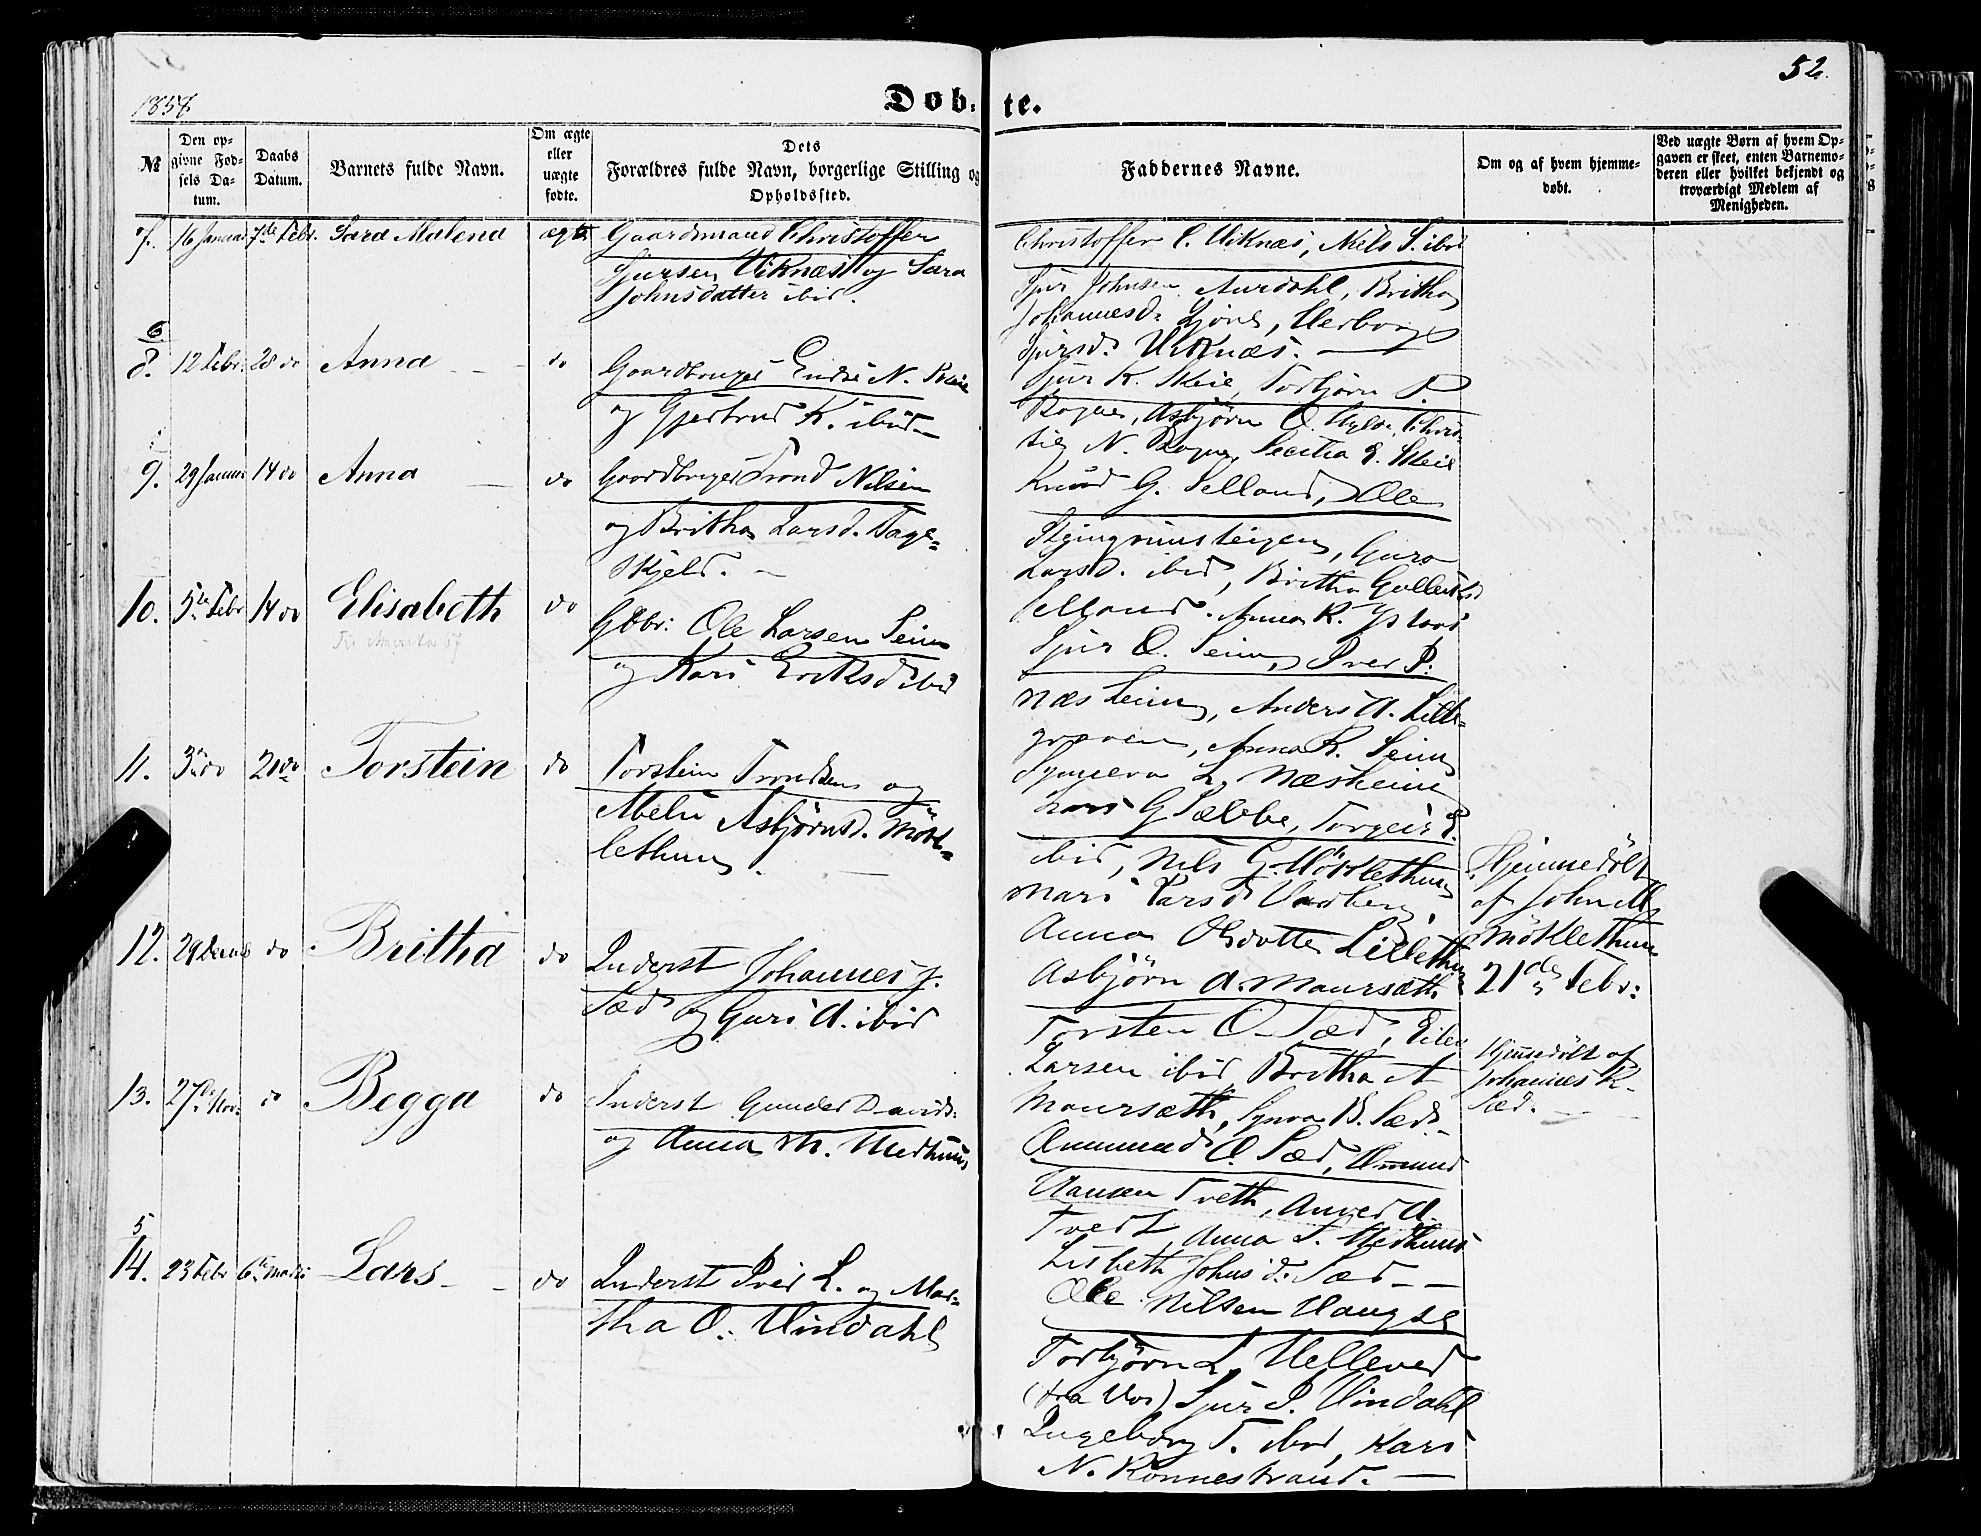 52.
1858
Døb-te.
№
Den op-
givne Fød-
sels Da-
tum.
Daabs
Datum.
Barnets fulde Navn.
Om ægte
eller
uægte
fødte.
Dets
Forældres fulde Navn, borgerlige Stilling og
Opholdssted.
Faddernes Navne.
Om og af hvem hjemme-
døbt.
Ved uægte Børn af hvem Op-
gaven er skeet, enten Barnemo-
deren eller hvilket bekjendt og
troværdigt Medlem af
Menigheden.
7. 16 Januar 7de Febr. Sara Malena ægte Gaardmand Christoffer
Sjursen Viknæs og Sara
Johnsdatter ibid.
Christoffer C. Viknæs, Niels S. ibid
Sjur Johnsen Aurdahl, Britha
Johannesd. Ljøne, Herborg
Sjursd. Viknæs.
6
8. 12 Febr. 28 do Anna do Gaardbruger Endre N. Skeie
og Gjertrud K. ibid
Sjur K. Skeie, Torbjørn P.
Rogne, Asbjørn O. Hylde, Chris-
ti N. Rogne, Secilia E. Skeie
9. 29 Januar 14 do Anna do Gaardbruger Trond Nilsen
og Britha Larsd. Tage-
skjeld.
Knud G. Selland, Ole
Steingrimsteigen, Guro
Larsd. ibid, Britha
Selland. Anna K.
10. 5te Febr 14 do Elisabeth do Gdbr: Ole Larsen Seim
Til Amerika 67
og Kari Eriksd ibid
Sjur O. Seim, Iver P.
Næsheim, Anders A. Lille-
græven, Anna K. Seim
Synneva L. Næsheim
11. 3 do 21 do Torstein do Torstein Trondsen og
Abelu Asbjørnsd. Møkl-
lethun.
Lars G Sæbbe, Torgeir E.
ibid, Nils G. Møkllethun
Mari Larsd
Anna Olsdatter Lillethun
Hjemmedøbt
af John M
Møkllethun
21de Febr:
12. 29 do Britha do Inderst Johannes J.
Sæd og Guri A. ibid
Asbjørn A. Maursæth
Torsten O. Sæd,
Larsen ibid Britha A
Maursæth, Synva B. Sæd
Hjemmedøbt af
Johannes K.
Sæd.
13. 27de Nov: do Begga do Inderst Gunder Davids.
og Anna M. Medhuus
Ammund O. Sæd,
Hansen Tveth, A.
Tveit Anna S. Medhuus
Lisbeth Johnsd. Sæd
5
14. 23 Febr 6te Marts Lars do Inderst Iver L. og Mar-
tha O. Vindahl
Ole Nilsen Haugse
Torbjørn L. Helleved
(fra Vos) Sjur P. Vindahl
Ingeborg T. ibid, Kari
N. Rønnestrand.